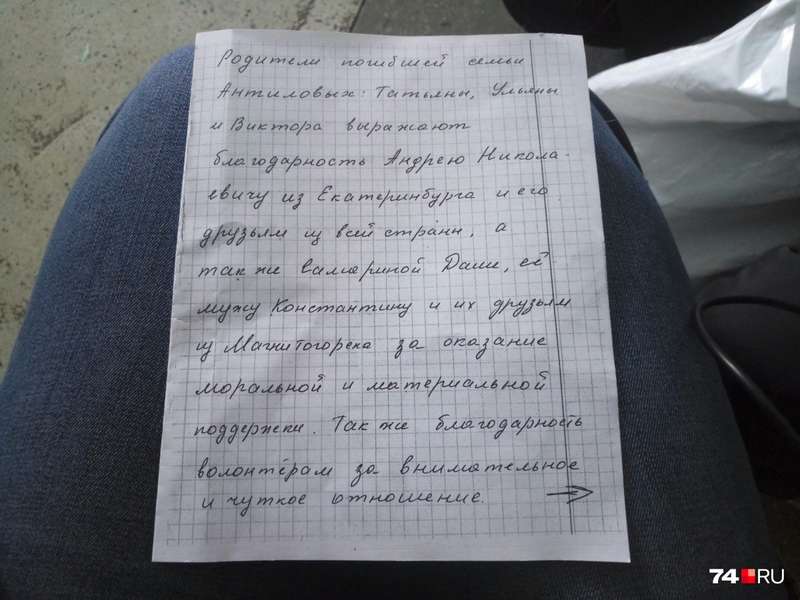 Родители погибшей семьи
Антиловых: Татьяны, Ульяны
и Виктора выражают
благодарность Андрею Никола-
евичу из Екатеринбурга и его
друзьям из всей страны, а
так же Даше, её
мужу Константину и их друзьям
из Магнитогорска за оказание
моральной и материальной
поддержки. Так же благодарность
волонтёрам за внимательное
и чуткое отношение.
74.RU